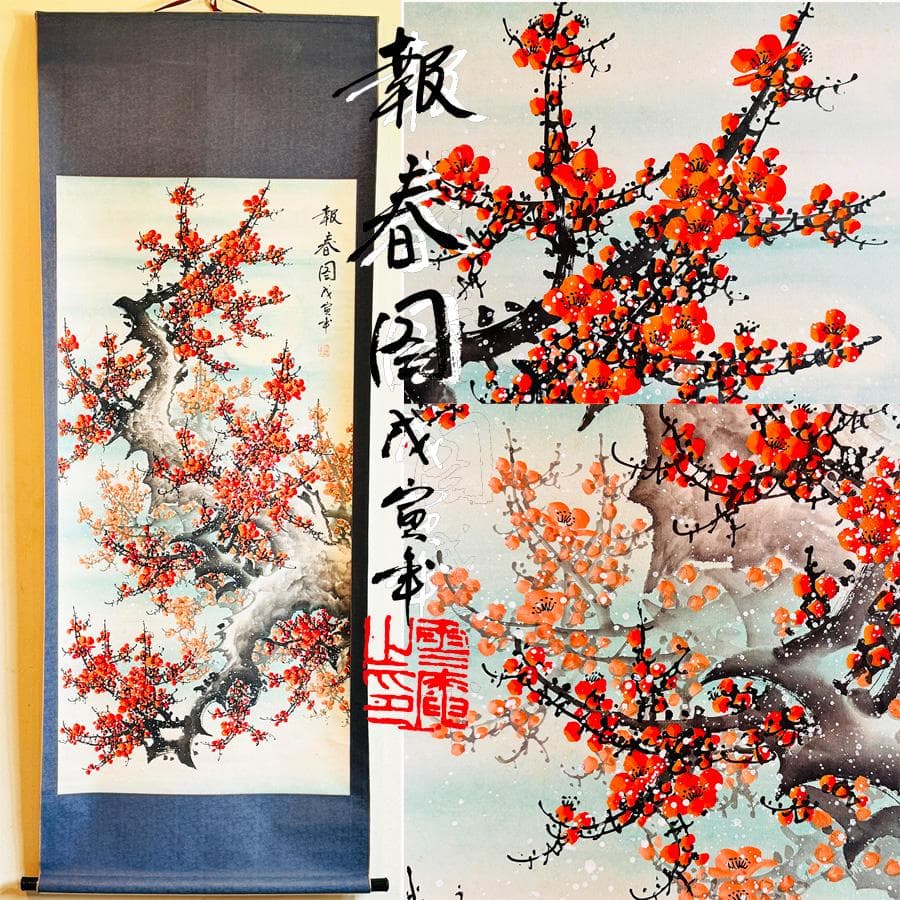 報春图戊寅年
報春图戊寅年